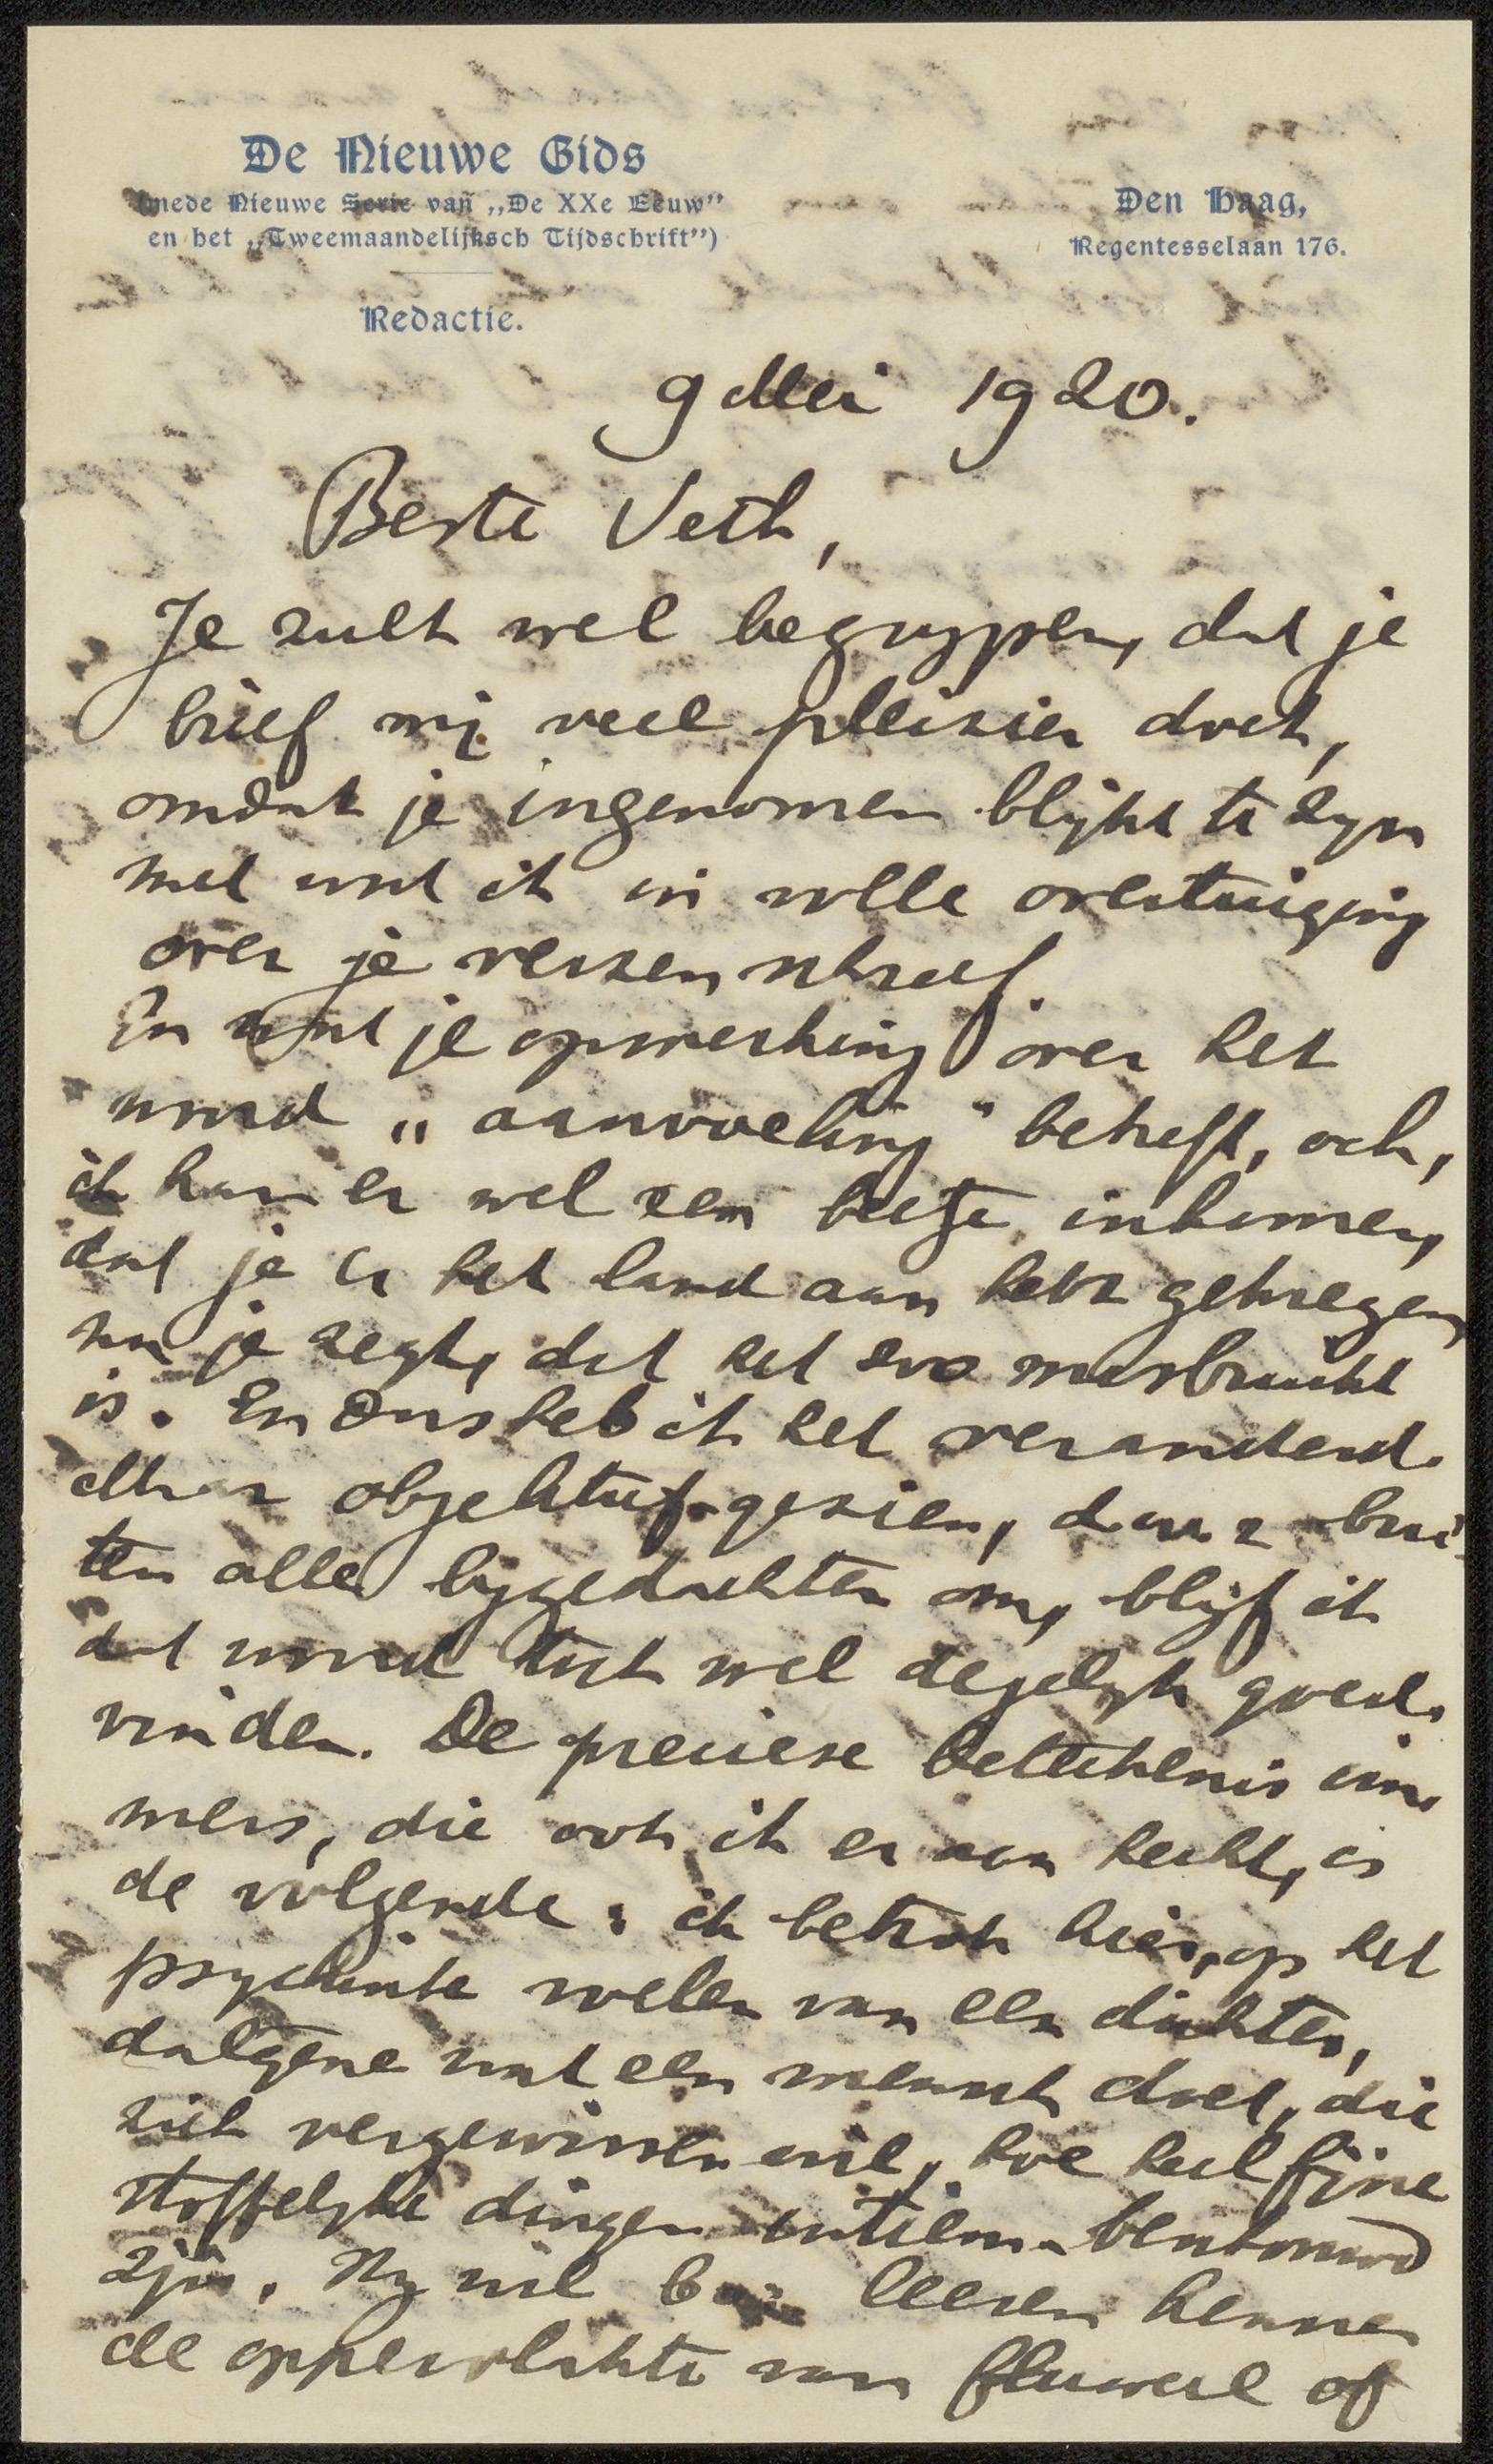 De Nieuwe Gids
(mede Nieuwe Serie van „De XXe Eeuw”
en het „Tweemaandelijksch Tijdschrift”)
Redactie.
Den Haag,
Regentesselaan 176.
9 Mei 1920.
Beste Veth,
Je zult wel begrypen, dat je
brief mij veel pleizier doet,
omdat je ingenomen blijkt te zyn
met wat ik in volle overtuiging
over je verzen schreef.
En wat je opmerking over het
woord „aanvoeling" betreft, och,
ik kan er wel een beetje inkomen,
dat je er het land aan hebt gekregen,
nu je zegt, dat het zoo misbruikt
is. En dus heb ik het veranderd.
Maar objektief-gezien, daar bui-
ten alle bijgedachten om, blijf ik
dat woord toch wel degelyk goed
vinden. De precieze beteekenis im-
mers, die ook ik er aan hecht, is
de volgende: ik betrok hier, op het
psychische weten van een dichter,
datgene wat een mensch doet, die
zich vergewissen wil, hoe heel fijne
stoffelyke dingen intiem-bentoond
zijn. Hy wil b.v. leeren kennen
de oppervlakte van fluweel of